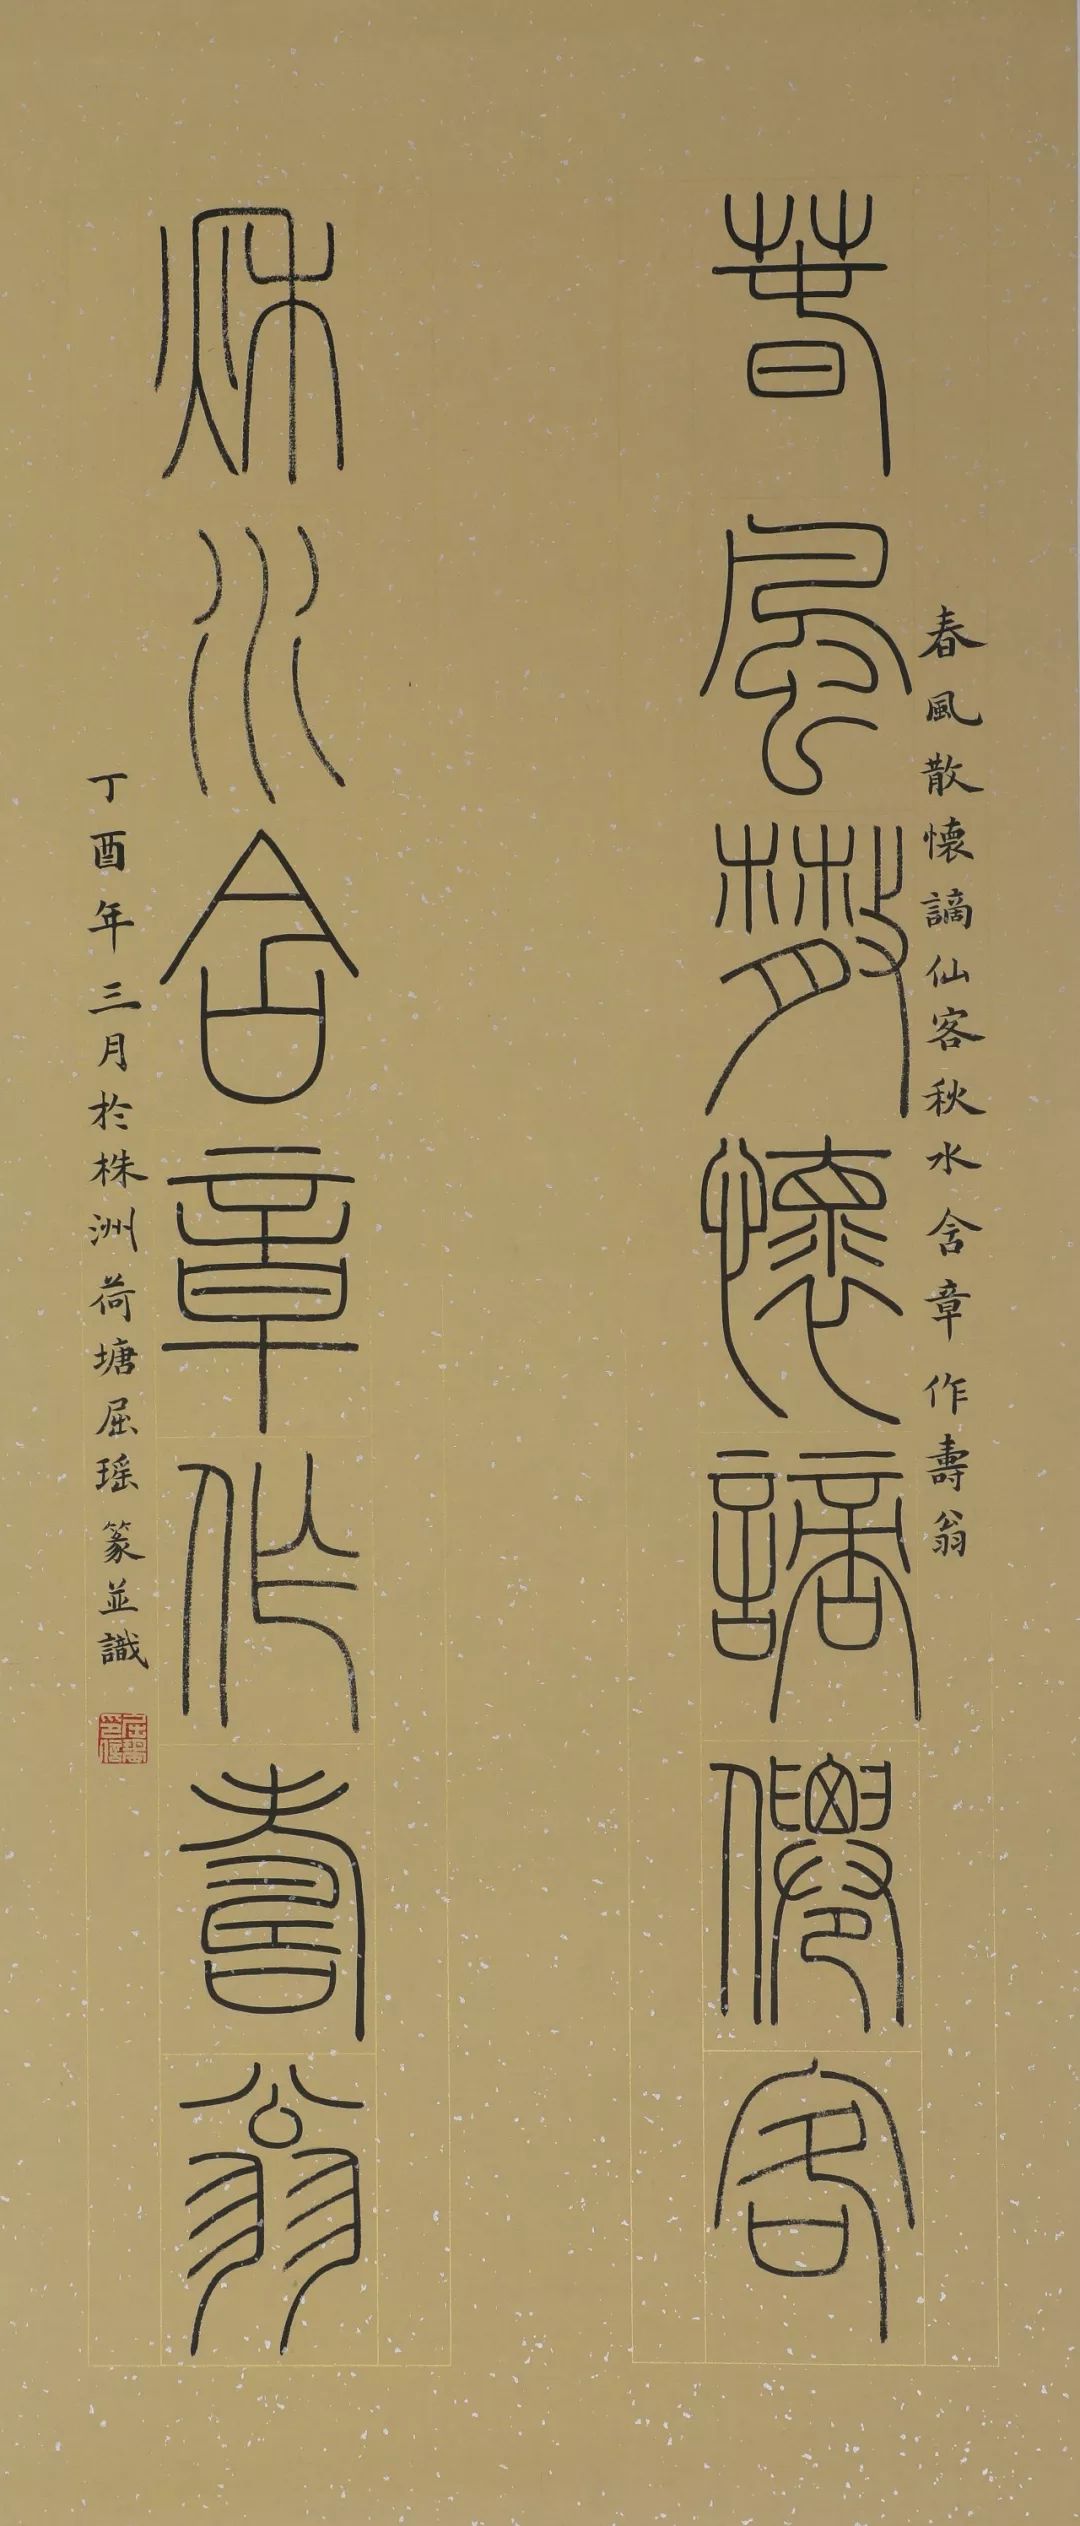 春風散懷謫仙客秋水含章作壽翁
春風散懷謫僊客
秋水含章作壽翁
丁酉年三月於株洲荷塘屈瑶篆並識